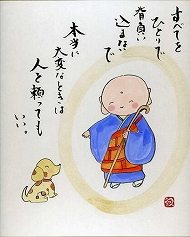 すべてを
ひとりで
背負い
込まない
で
本当に
大変なときは
人を頼っても
いい...